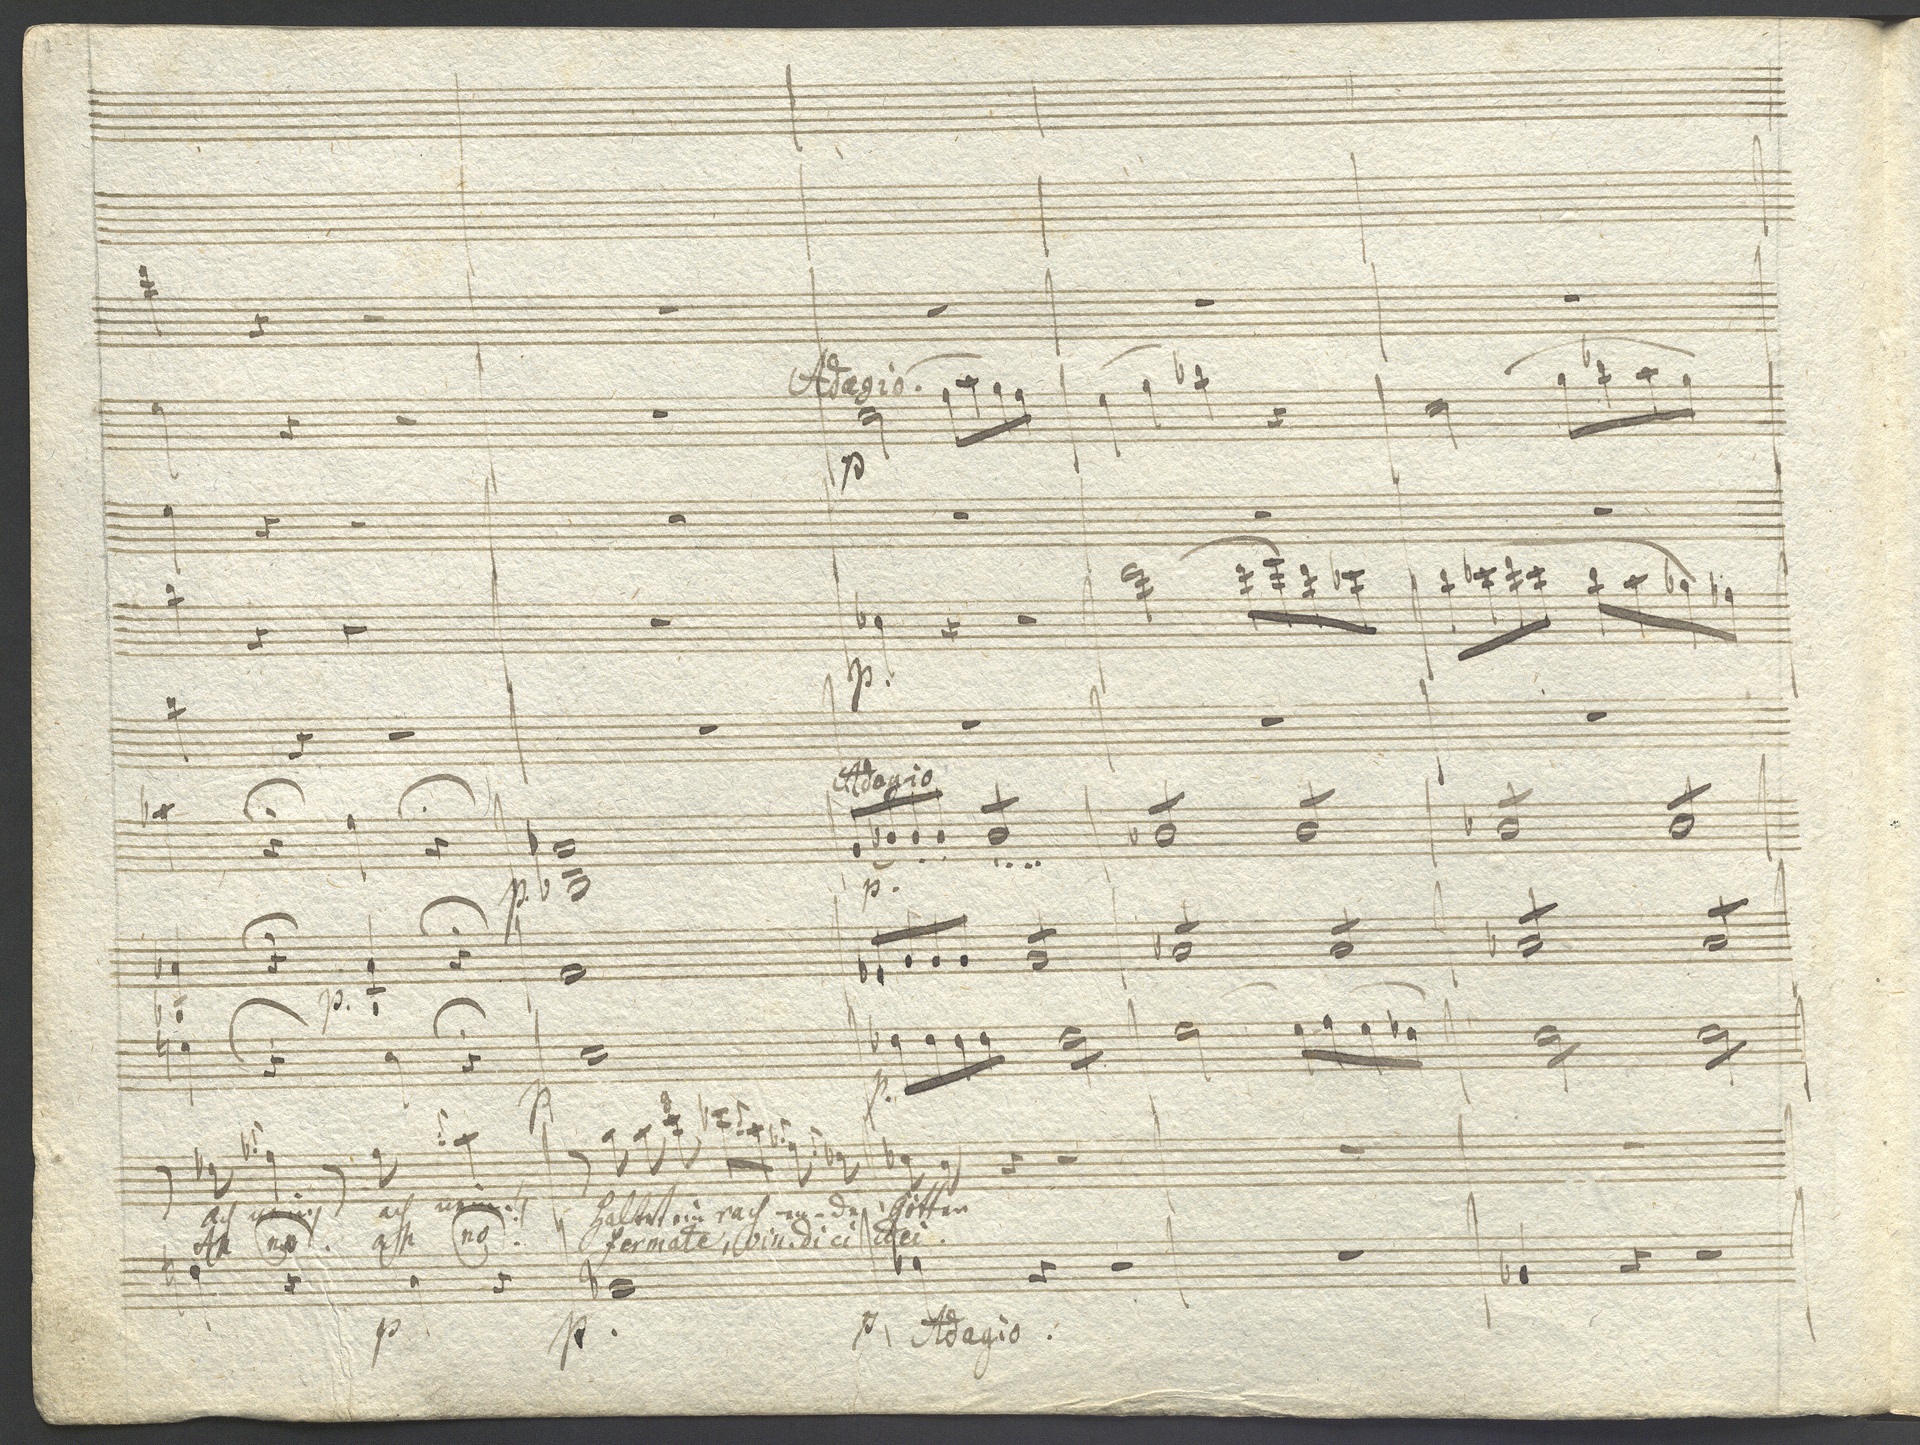 Adagio.
p
p.
Adagio
p.
p.
p.
p
p.
ach nein, ach nein!
haltet ein rach-en-de Götter
Ah no. ah no.
fermate, vindici dei.
p
p.
p
Adagio.